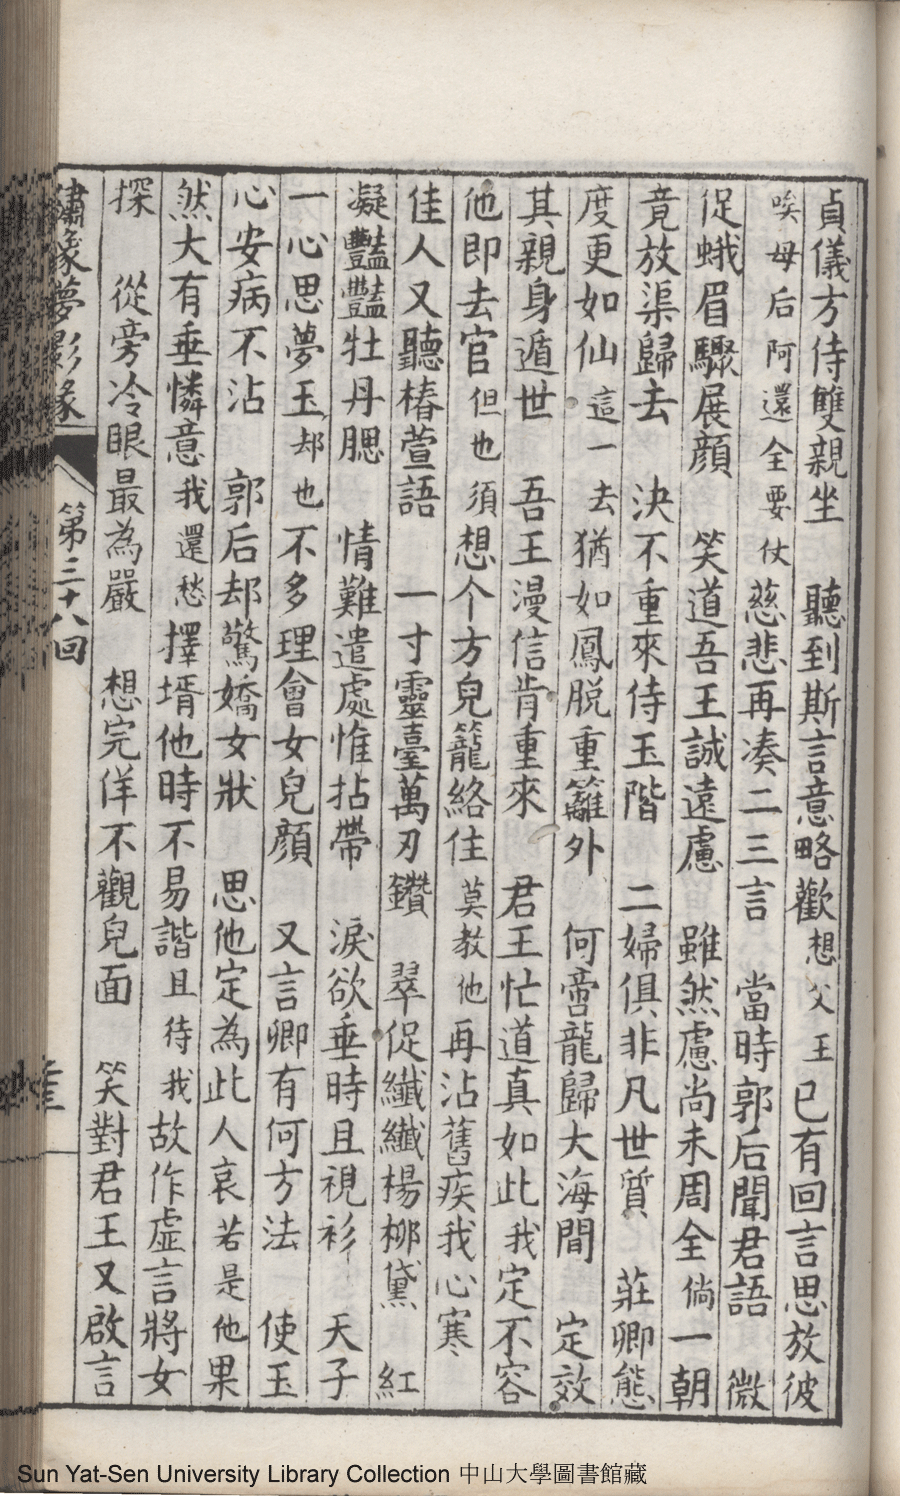 貞儀方侍雙親坐　聽到斯言意略歡想父王已有回言思放彼
唉母后阿還全要仗慈悲再湊二三言　當時郭后聞君語　微
促蛾眉驟展顏　笑道吾王誠遠慮　雖然慮尚未周全倘一朝
竟放渠歸去　決不重來侍玉階　二婦俱非凡世質　莊卿態
度更如仙這一去猶如鳳脱重籬外　何啻龍歸大海間　定效
其親身遁世　吾王漫信肯重來　君王忙道真如此我定不容
他即去官但也須想个方兒籠絡住莫教他再沾舊疾我心寒
佳人又聽椿萱語　一寸靈臺萬刃鑽　翠促纖纖楊柳黛　紅
凝豔豔牡丹腮　情難遣處惟拈帶　淚欲垂時且視衫　天子
一心思夢玉却也不多理會女兒顏　又言卿有何方法　使玉
心安病不沾　郭后却驚嬌女狀　思他定為此人哀若是他果
然大有垂憐意我還愁擇壻他時不易諧且待我故作虛言將女
探　從旁冷眼最為嚴　想完佯不觀兒面　笑對君王又啟言
繡像夢影緣　第三十八回
Sun Yat-Sen University Library Collection 中山大學圖書館藏